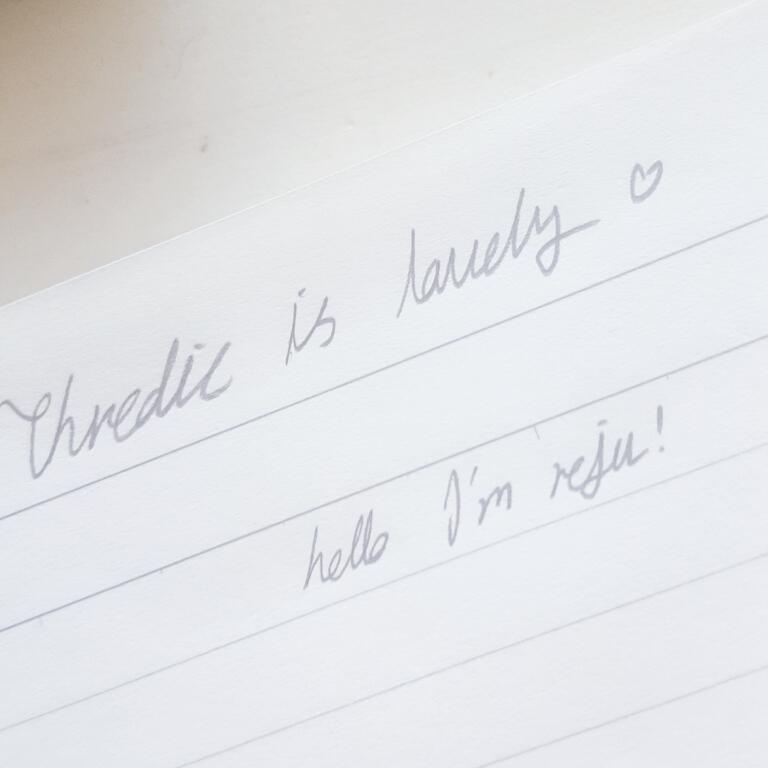 Thredic is lovely ♡
hello I'm reju!